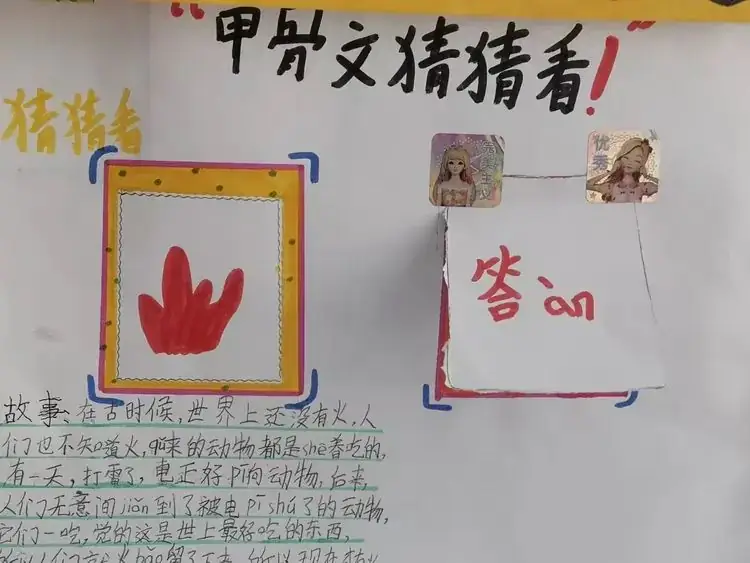 “甲骨文猜猜看！”
猜猜看
优秀
答àn
故事：在古时候，世界上还没有火，人
们也不知道火，的动物都是shēng着吃的，
有一天，打雷了，电正好pī向动物，后来，
人们无意间jiǎn到了被电pī shú了的动物，
它们一吃，觉的这是世上最好吃的东西，